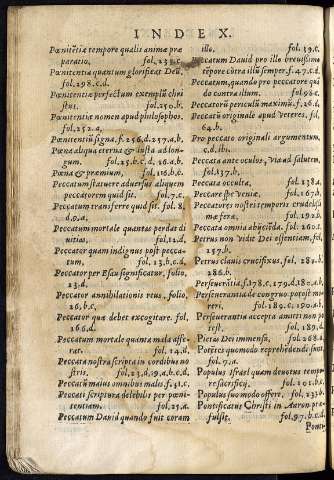 INDEX.
Pœnitẽtiæ tempore qualis animæ præ
paratio, fol.233.c.
Pœnitentia quantum glorificat Deũ,
fol.298.c.d.
Pœnitentiæ perfectum exemplũ chri
stus. fol.250.b.
Pœnitentiæ nomen apud philosophos.
fol.252.a.
Pœnitentiũ signa, f.256.d.257.a,b.
Pœna aliqua eterna & iusta ad lon-
gum. fol.25.b.c.d. 26.a.b.
Pœna & præmium, fol.116.b.c.
Peccatum statuere aduersus aliquem
peccatorem quid sit. fol.7.c.
Peccatum transferre quid sit. fol.8.
Peccatum mortale quantas perdat di
uitias, fol.12.d.
Peccator quam indignus post pecca-
tum, fol.13.b.c.d.
Peccator per Esau significatur, folio
23.d.
Peccator annihilationis reus, folio
26.b.c.
Peccator qua debet excogitare. fol.
26.c.d.
Peccatum mortale quanta mala affe-
rat. fol.14.d.
Peccata nostra scripta in cordibus no
stris.
Peccatũ maius omnibus malis. f.31.c.
Peccati scriptura delebilis per pœni-
tentiam. fol.25.a.
Peccatum Dauid quando fuit coram
illo. fol.39.c.
Peccatum Dauid pro illo breuissimo
tẽpore cõtra illũ semper. f.47.c.d.
Peccatum, quando pro peccatore qui
do contra illum. fol.96.c.
Peccatoris periculũ maximũ. f.26.d.
Peccatũ originale apud veteres, fol.
64.b.
Pro peccato originali argumentum,
c.d.ibi.
Peccata ante oculos, via ad salutem,
fol.137.b.
Peccata occulta, fol.138.a.
Peccare spe veniæ, fol.167.b.
Peccatores nostri temporis crudelissi
ma feræ, fol.192.b.
Peccata omnia abijciẽda. fol.260.c.
Petrus non vidit Dei ostensam, fol.
257.b.
Petrus clauis crucifixus, fol.281.
286.b.
Perseuerãtia, f.178.c.179.d.181.a.b.
Perseuerantia de congruo potest me
reri, fol.180.c.190.a.b
Perseuerantia accepta amitti non po
test. fol.189.d.
Pietas Dei immensa, fol.268.a.
Potẽtes quomodo reprehendendi sunt,
fol.9.a.
Populus Israel quam deuotus temporis
re sacrificij, fol.101.b.c.
Populus suo modo offere, fol.233.b.
Pontificatus Christi in Aaron præ-
fulsit. fol.97.b.c.d.
Ponti-